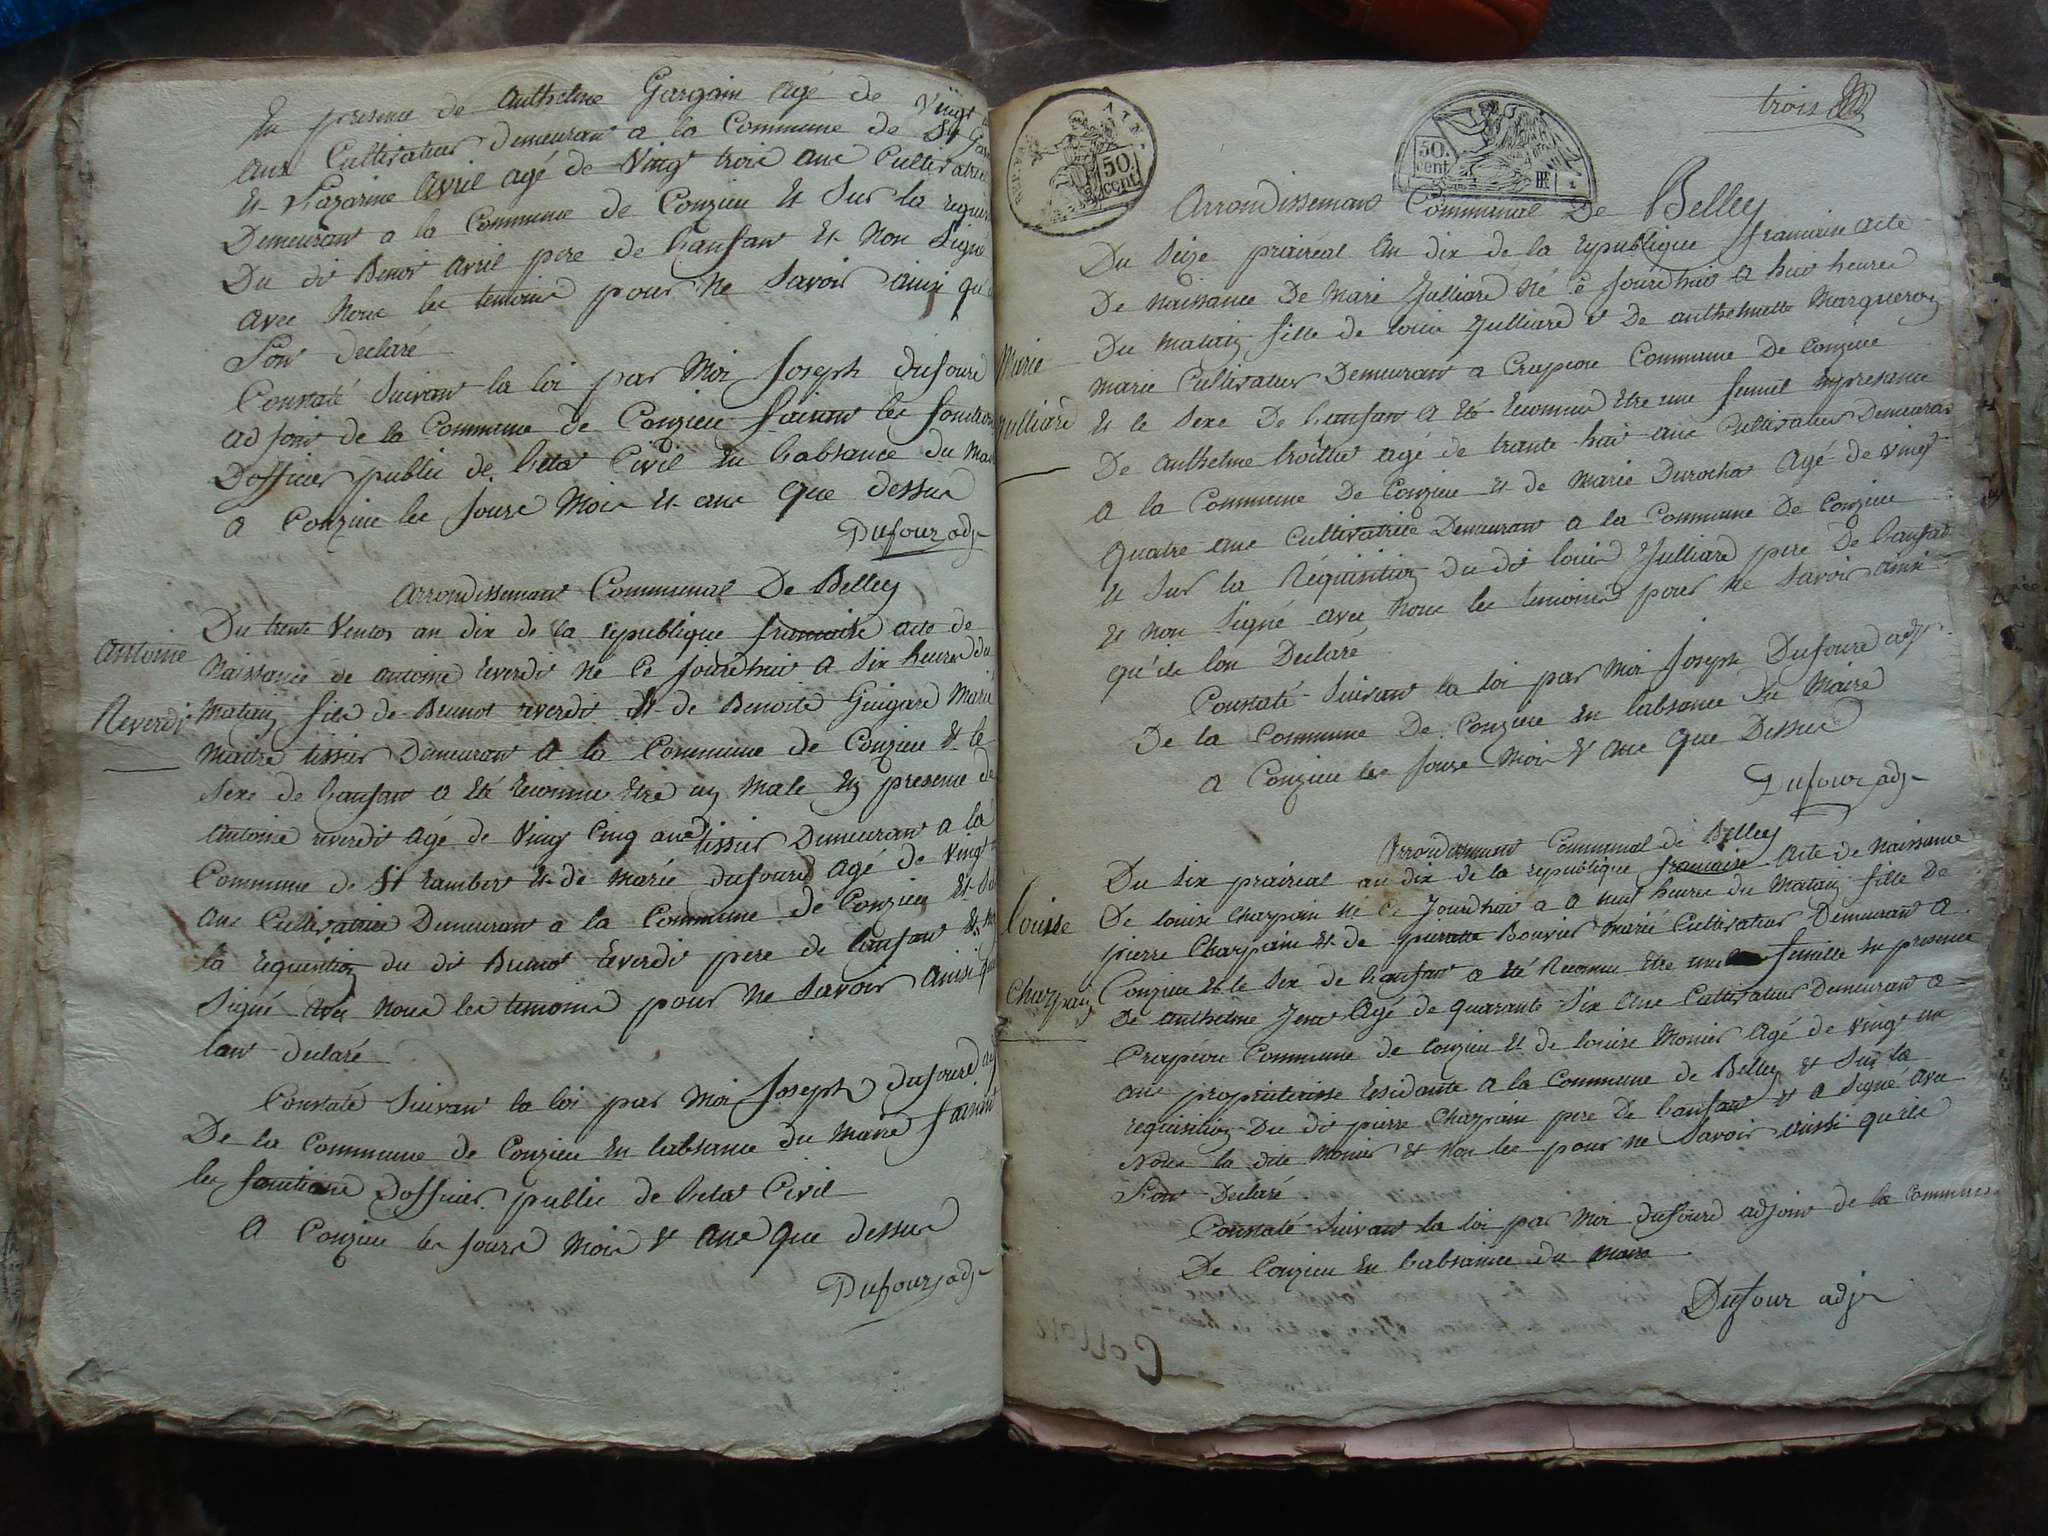 En presence de anthelme Gargain agé de Vingt
ans Cultivateur demeuran a la Commune de St
et Lazarine Avril agé de Ving trois ans Cultivatrice
Demeuran a la Commune de Conzieu et Sur la
Du dit Benoi Avril pere de lanfan et Non Signé
avec Nous les temoins pour Ne Savoir ainsi
Son declaré
Constaté Suivan la loi par Moi Joseph dufourd
adjoin de la Commune de Conzieu faisan les fonction
Dofficier public de letat Civil en labsance du
a Conzieu les Jours Mois et ans que dessus
Dufour adj
Arrondissement Communal De Belley
Antoine
Reverdi
Du trente Ventos an dix de la republique francaise acte de
Naissance de antoine reverdi Né Ce Jourdhui a Six heures du
Matain fils de Brunot reverdi et de Benoite Guigard Marie
Maitre tissier Demeuran a la Commune de Conzieu et le
Sexe de lanfan a eté reconnu etre un Male En presence de
Antoine reverdi agé de Ving Cinq ans tissier Demeuran a la
Commune de St rambert et de Marie dufourd agé de Vingt
ans Cultivatrice Demeuran a la Commune de Conzieu et
la requisition du dit Bruno reverdi pere de lanfan et
Signé avec Nous les temoins pour Ne Savoir ainsi
lan declaré
Constaté Suivan la loi par Moi Joseph dufourd
De la Commune de Conzieu en labsance du Maire faisant
les fonctions Dofficier public de letat Civil
A Conzieu les Jours Mois et ans que dessus
Dufour adj
trois
REP. FRA.
50. cent
50. cent
Arrondissement Communal De Belley
Marie
Julliard
Du Seize praireal an dix de la republique francaise acte
De Naissance De Marie Julliard Né Ce Jourdhui a huit heures
Du Matain fille de louis Julliard et De anthelmette Marqueron
Marie Cultivateur Demeuran a Crapéou Commune de Conzieu
et le Sexe De lenfan a eté reconnu etre une femel enpresance
De Anthelme trolliet agé de trante huit ans Cultivateur Demeuran
a la Commune De Conzieu et de Marie Durochat Agé de Vingt
quatre ans Cultivatrice Demeuran a la Commune De Conzieu
et Sur la Requisition du dit louis Julliard pere De lanfan
et Non Signé avec Nous les temoins pour Ne Savoir ainsi
qu'ils lon Declaré
Constaté Suivan la loi par Moi Joseph Dufourd adj
De la Commune De Conzieu En labsance du Maire
a Conzieu les Jours Mois et ans que Dessus
Dufour adj
Arrondissement Communal de Belley
Louisse
Charpain
Du Six praireal an dix de la republique francaise Acte de Naissance
De louise Charpain né Ce Jourdhui a neuf heures du Matain fille De
pierre Charpain et de pierrette Bouvier Marié Cultivateur Demeuran a
Conzieu et le Sex de lanfan a eté Reconnu etre une femelle en presence
De anthelme Agé de quarante Six ans Cultivateur Demeuran a
Crapéou Commune de Conzieu et de louise Monier Agé de Vingt un
ans proprieterisse residante a la Commune de Belley et Sur la
requisition Du dit pierre Charpain pere De lanfan et a Signé avec
Nous la dite Monier et Non les pour ne Savoir ainsi quils
Lon Declaré
Constaté Suivan la loi par Moi dufourd adjoin de la Commune
De Conzieu en labsance du Maire
Dufour adj